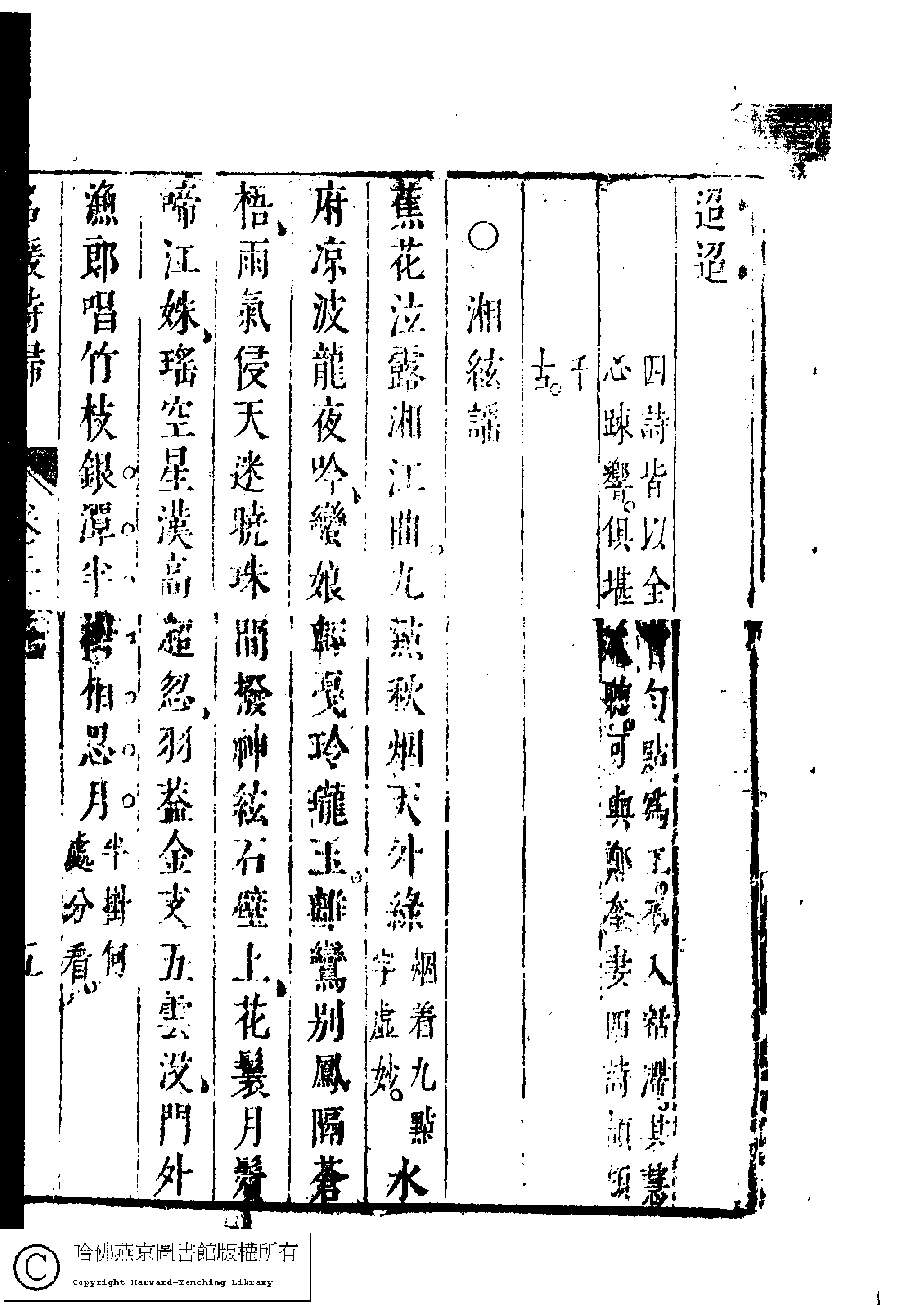 迢迢
四詩皆以全首勻點爲工。亦入...其慧
心踈響。俱堪...聽。可與鄭奎妻四詩頡頏
千
古。
○湘絃謡
蕉花泣露湘江曲。九點秋烟天外綠烟着九點字虛妙。水
府凉波龍夜吟、蠻娘輕戞玲瓏玉。離鸞別鳳隔蒼
梧、雨氣侵天迷曉珠間撥神絃石壁上、花鬟月鬢
啼江姝、瑤空星漢高超忽、羽葢金支五雲沒、門外
漁郎唱竹枝銀潭半掛相思月半掛何處分看
名媛詩歸
五
哈佛燕京圖書館版權所有
Copyright Harvard-Yenching Library